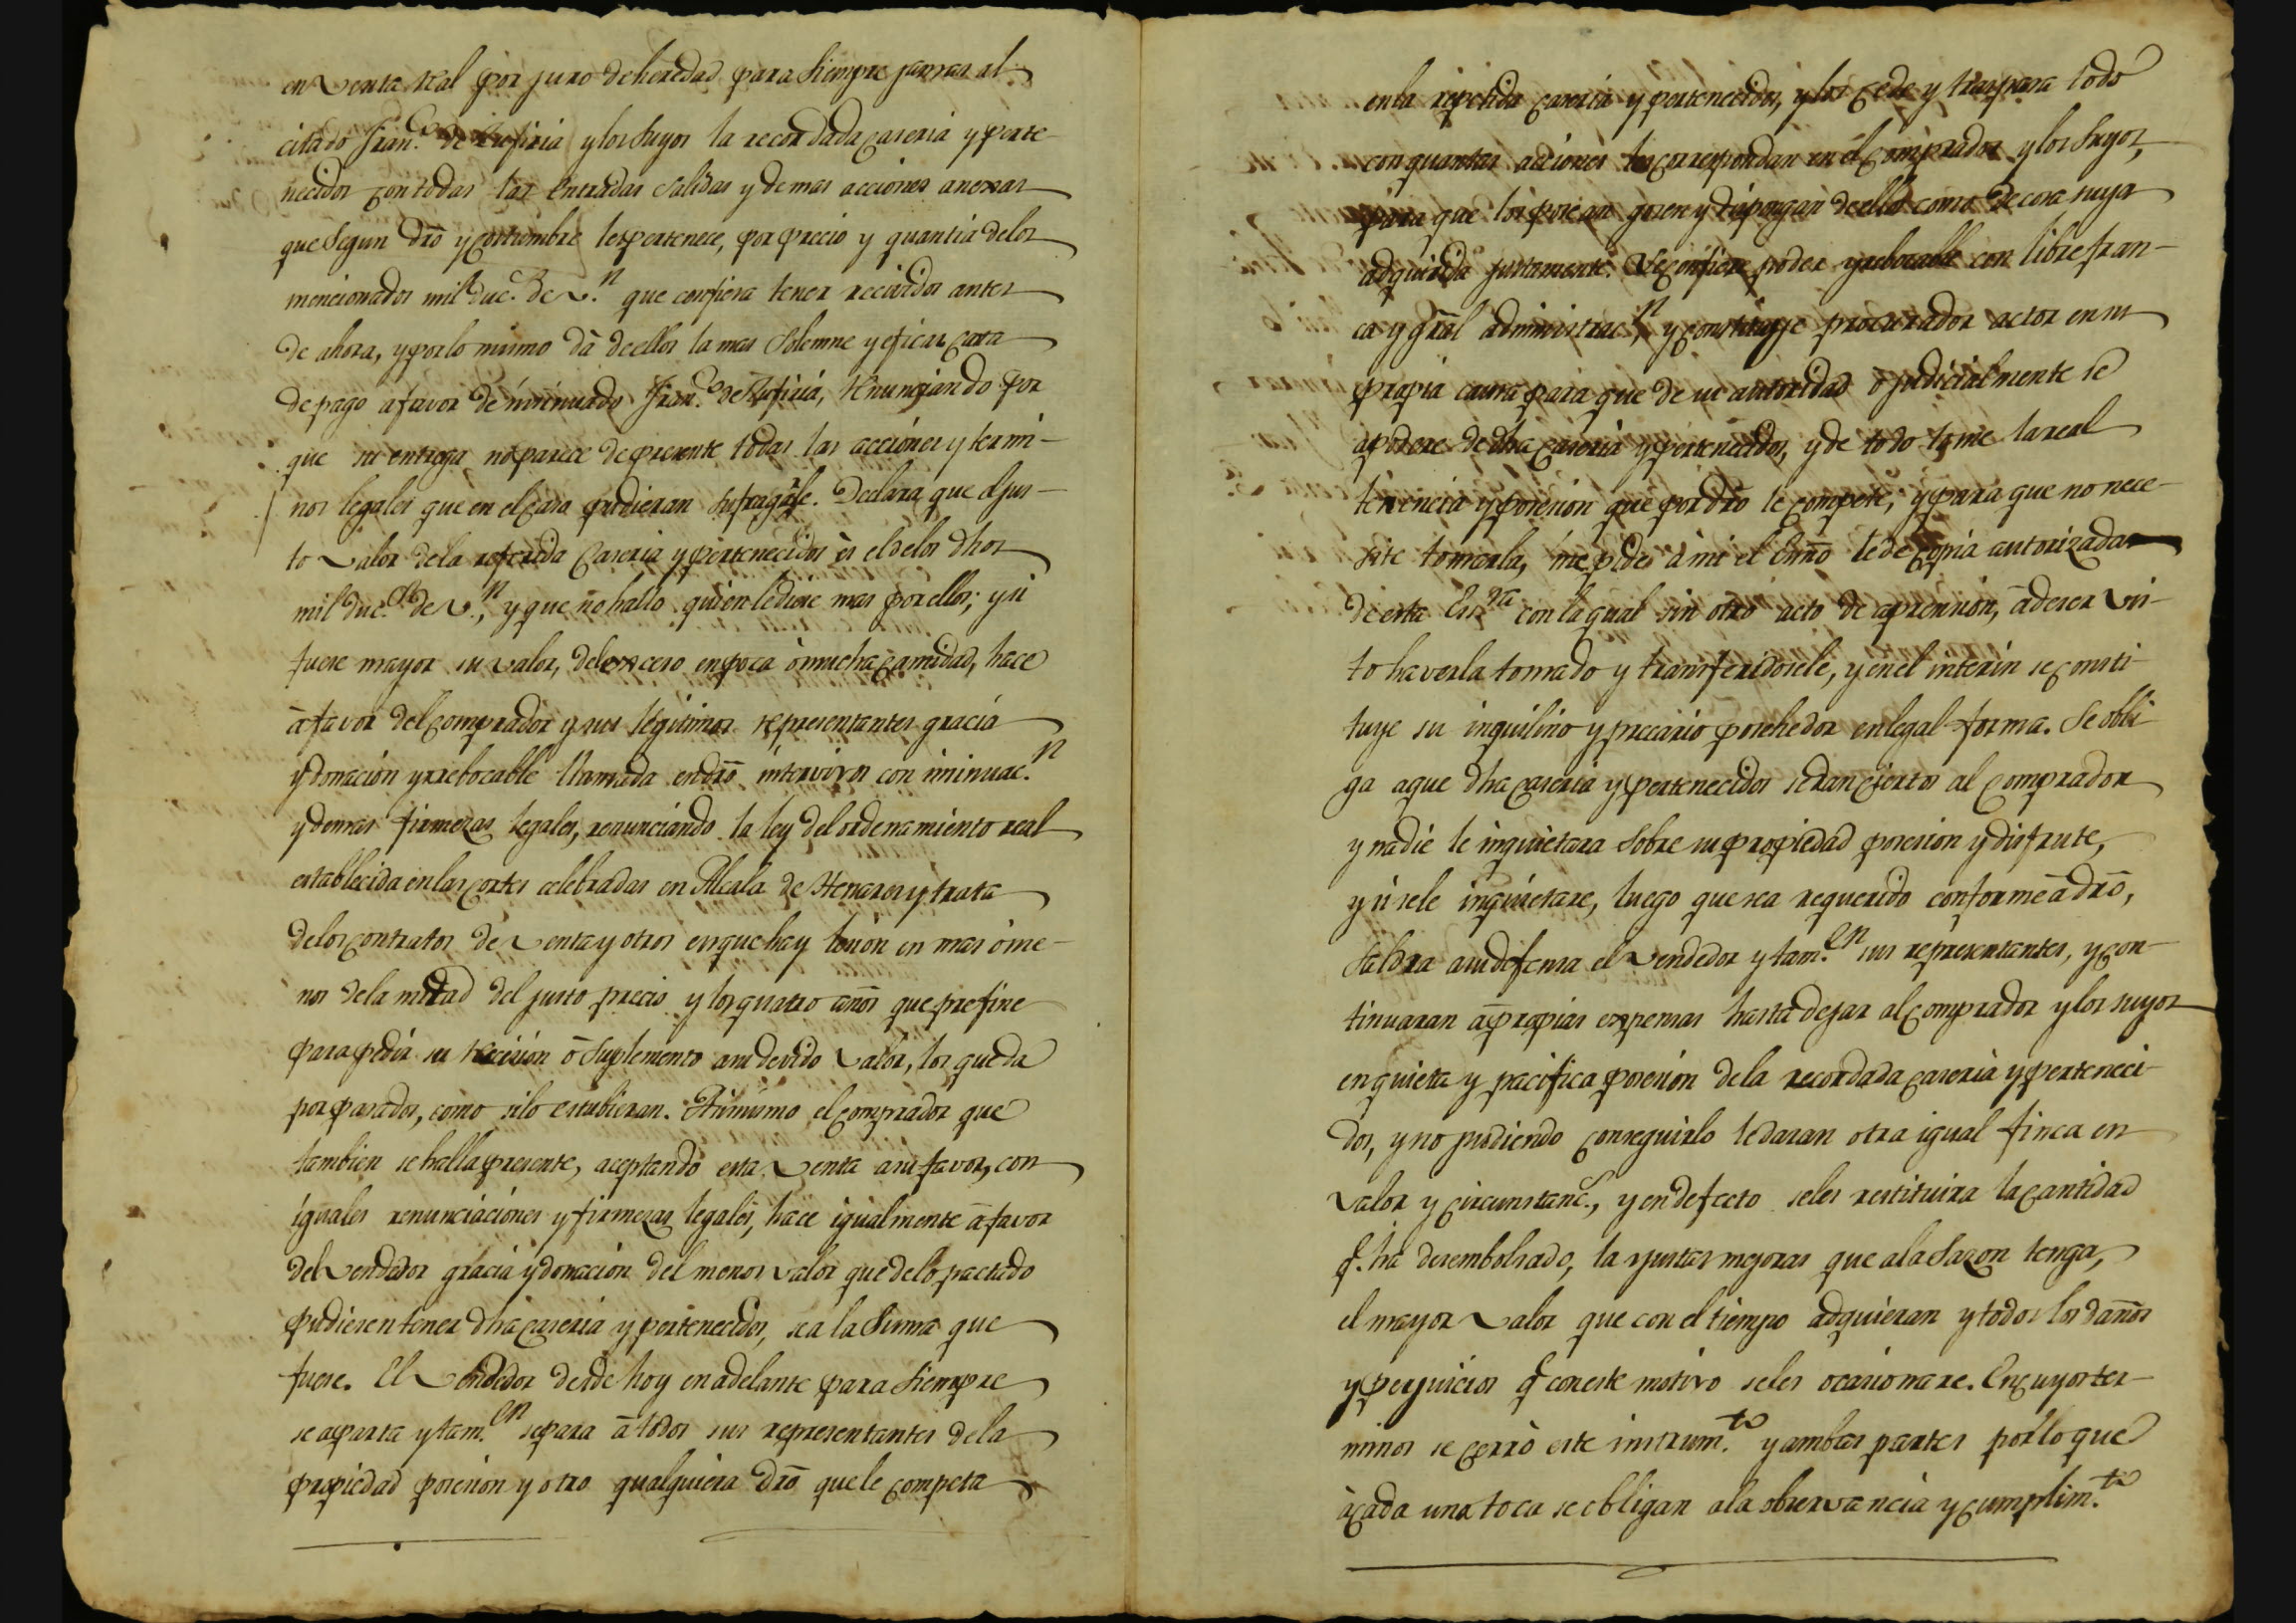 en venta real por juro de heredad para siempre jamas al
citado Fran.co de Refiria y los suyos la recordada caseria y perte-
necidos con todas las entradas salidas y demas acciones anexas
que segun dro y costumbre les pertenece, por precio y quantia de los
mencionados mil duc.s de v.n que confiesa tener recividos antes
de ahora, y por lo mismo dà de ellos la mas solemne y eficaz carta
de pago a favor de insinuado Fran.co de Refiria, renunciando por
que su entrega no parece de presente todas las acciones y termi-
nos legales que en el caso pudieran sufragarle. Declara que el jus-
to valor de la referida caseria y pertenecidos es el de los dhos
mil duc.s de v.n, y que no hallo quien le diese mas por ellos; y si
fuese mayor su valor, del exceso en poca ò mucha cantidad, hace
à favor del comprador y sus legitimos representantes gracia
y donacion yrrebocable llamada en dro intervivos con insinuac.n
y demas firmezas legales, renunciando la ley del ordenamiento real
establecida en las cortes celebradas en Alcala de Henares y trata
de los contratos de venta y otros en que hay lesion en mas ò me-
nos de la mitad del justo precio y los quatro años que prefine
para pedir su recision ò suplemento a su devido valor, los que da
por pasados, como si lo estubieran. Asimismo el comprador que
tambien se halla presente, aceptando esta venta a su favor, con
iguales renunciaciones y firmezas legales, hace igualmente à favor
del vendedor gracia y donacion del menor valor que de lo pactado
pudiesen tener dha caseria y pertenecidos, sea la suma que
fuese. El vendedor desde hoy en adelante para siempre
se aparta y tam.en separa à todos sus representantes de la
propiedad posesion y otro qualquiera dro que le competa
en la repetida caseria y pertenecidos, y los cede y traspasa todo
con quantas acciones les correspondan en el comprador y los suyos,
para que los posean gosen y dispongan de ellos como de cosa suya
adquirida justamente. Le confiere poder yrrebocable con libre fran-
ca y gral administrac.n, y constituye procurador actor en su
propia causa para que de su autoridad ò judicialmente se
apodere de dha caseria y pertenecidos, y de todo tome la real
tenencia y posesion que por dro le compete; y para que no nece-
site tomarla, me pide à mi el Essno le de copia autorizada
de esta Ess.ra con la qual sin otro acto de aprension, à de ser vis-
to haverla tomado y transferidosele, y en el interin se consti-
tuye su inquilino y precario posehedor en legal forma. Se obli-
ga a que dha caseria y pertenecidos seran ciertos al comprador
y nadie le inquietara sobre su propiedad posesion y disfrute,
y si se le inquietare, luego que sea requerido conforme à dro,
saldra a su defensa el vendedor y tam.en sus representantes, y con-
tinuaran à propias expensas hasta dejar al comprador y los suyos
en quieta y pacifica posesion de la recordada caseria y perteneci-
dos, y no pudiendo conseguirlo le daran otra igual finca en
valor y circunstanc.s, y en defecto se les restituira la cantidad
q. ha desembolsado, la y justas mejoras que a la sazon tenga,
el mayor valor que con el tiempo adquieran y todos los daños
y perjuicios q con este motivo se les ocasionare. En cuyos ter-
minos se cerrò este instrum.to y ambas partes por lo que
à cada una toca se obligan a la observancia y cumplim.to